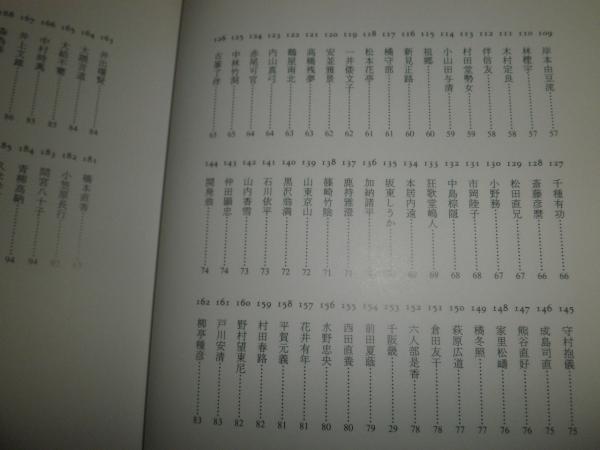 109 岸本由豆流 57
110 林檉宇 57
111 木村定良 58
112 伴信友 58
113 村田堂勢女 59
114 小山田与清 59
115 祖郷 60
116 新見正路 60
117 橘守部 61
118 松本花亭 61
119 一井倭文子 62
120 安並雅景 62
121 高橋残夢 63
122 鶴屋南北 63
123 内山真弓 64
124 赤尾可官 64
125 中林竹洞 65
126 古筆了伴 65
127 千種有功 66
128 斎藤彦麿 66
129 松田直兄 67
130 小野務 67
131 市岡陸子 68
132 中島棕隠 68
133 狂歌堂嶋人 69
134 本居内遠 69
135 坂東しうか
136 加納諸平
137 鹿持雅澄 71
138 篠崎竹陰 71
139 山東京山 72
140 黒沢翁満 72
141 石川依平 73
142 山内香雪 73
143 仲田顕忠 74
144 74
145 守村抱儀 75
146 成島司直 75
147 熊谷直好 76
148 家里松嶹 76
149 橘冬照 77
150 萩原広道 77
151 倉田友千 78
152 六人部是香 78
153 千阪畿 29
154 前田夏蔭 79
155 西田直養 80
156 水野忠央 80
157 花井有年 81
158 平賀元義 81
159 村田春路 82
160 野村望東尼 82
161 戸川安清 83
162 柳亭種彦 83
163 井出曙覧 84
164 大隈言道 84
165 大給不騫
166 中村時萬 85
167 井上文雄
168
181 橋本直香
182 小笠原長行
183 間宮八十子 93
184 青柳高鞆 94
185 94